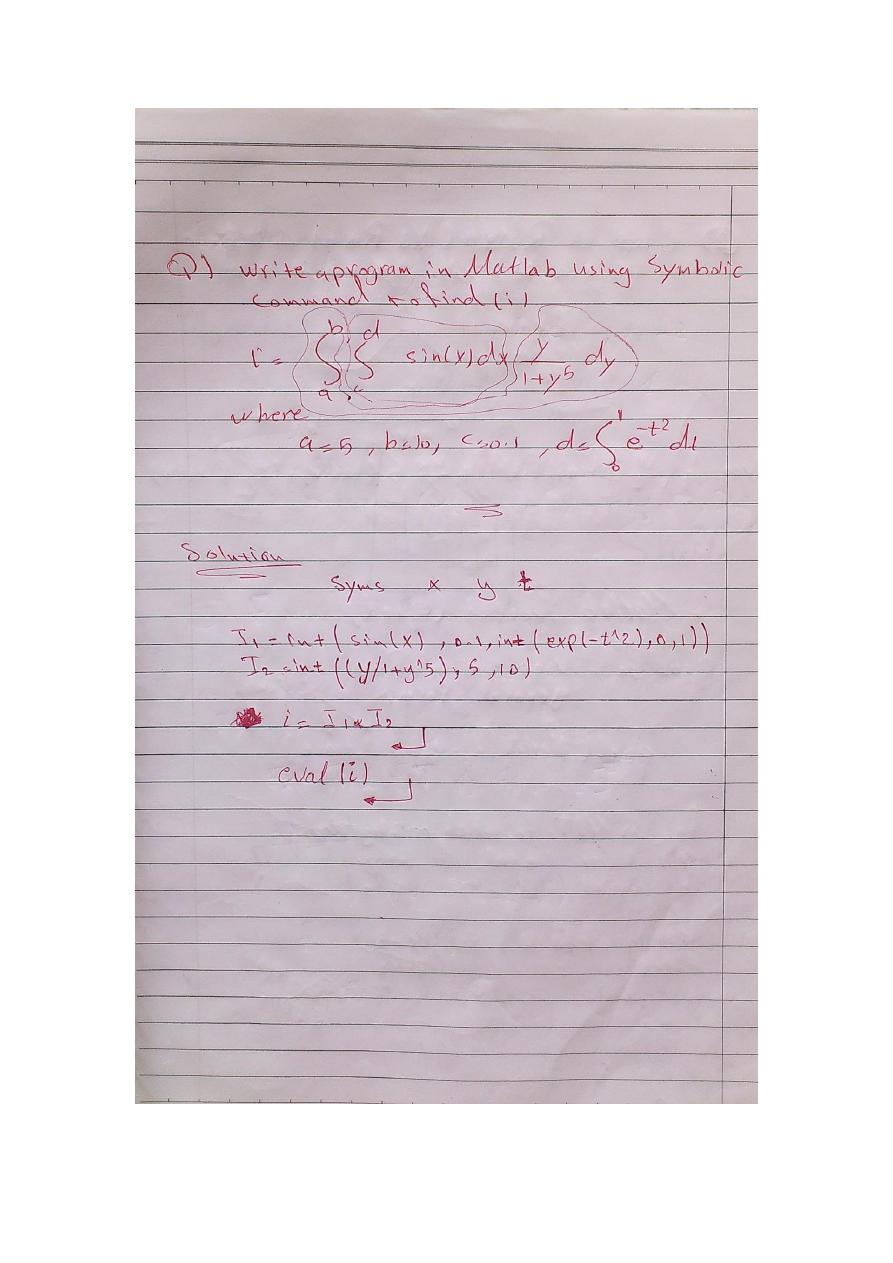 Q) write a program in Matlab using Symbolic
Command to find (i)
i = ∫ₐᵇ ∫_c^d sin(x) dx y/(1+y⁵) dy
where
a=5, b=10, c=0.1, d=∫₀¹ e^(-t²) dt
Solution
Syms x y t
I₁ = int ( sin(x) , 0.1, int ( exp(-t^2), 0, 1))
I₂ = int ((y/1+y^5), 5, 10)
i = I₁ * I₂
eval (i)